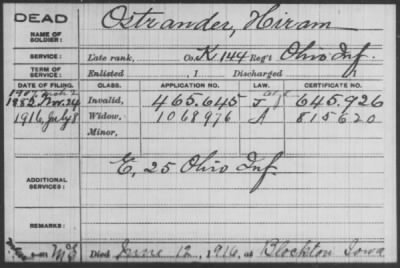 DEAD
NAME OF SOLDIER:
Ostrander, Hiram
SERVICE:
Late rank, Co. K, 144 Reg't Ohio Inf.
TERM OF SERVICE:
Enlisted , 1 Discharged , 1
DATE OF FILING. CLASS. APPLICATION NO. LAW. CERTIFICATE NO.
1882 Nov. 24 Invalid, 465.645 J 645.926
1916 July 8 Widow, 1068976 A 815620
Minor,
ADDITIONAL SERVICES:
E, 25 Ohio Inf
REMARKS:
Died June 12, 1916, at Blockton Iowa